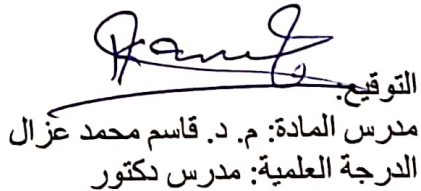 التوقيع:
مدرس المادة: م. د. قاسم محمد عزال
الدرجة العلمية: مدرس دكتور